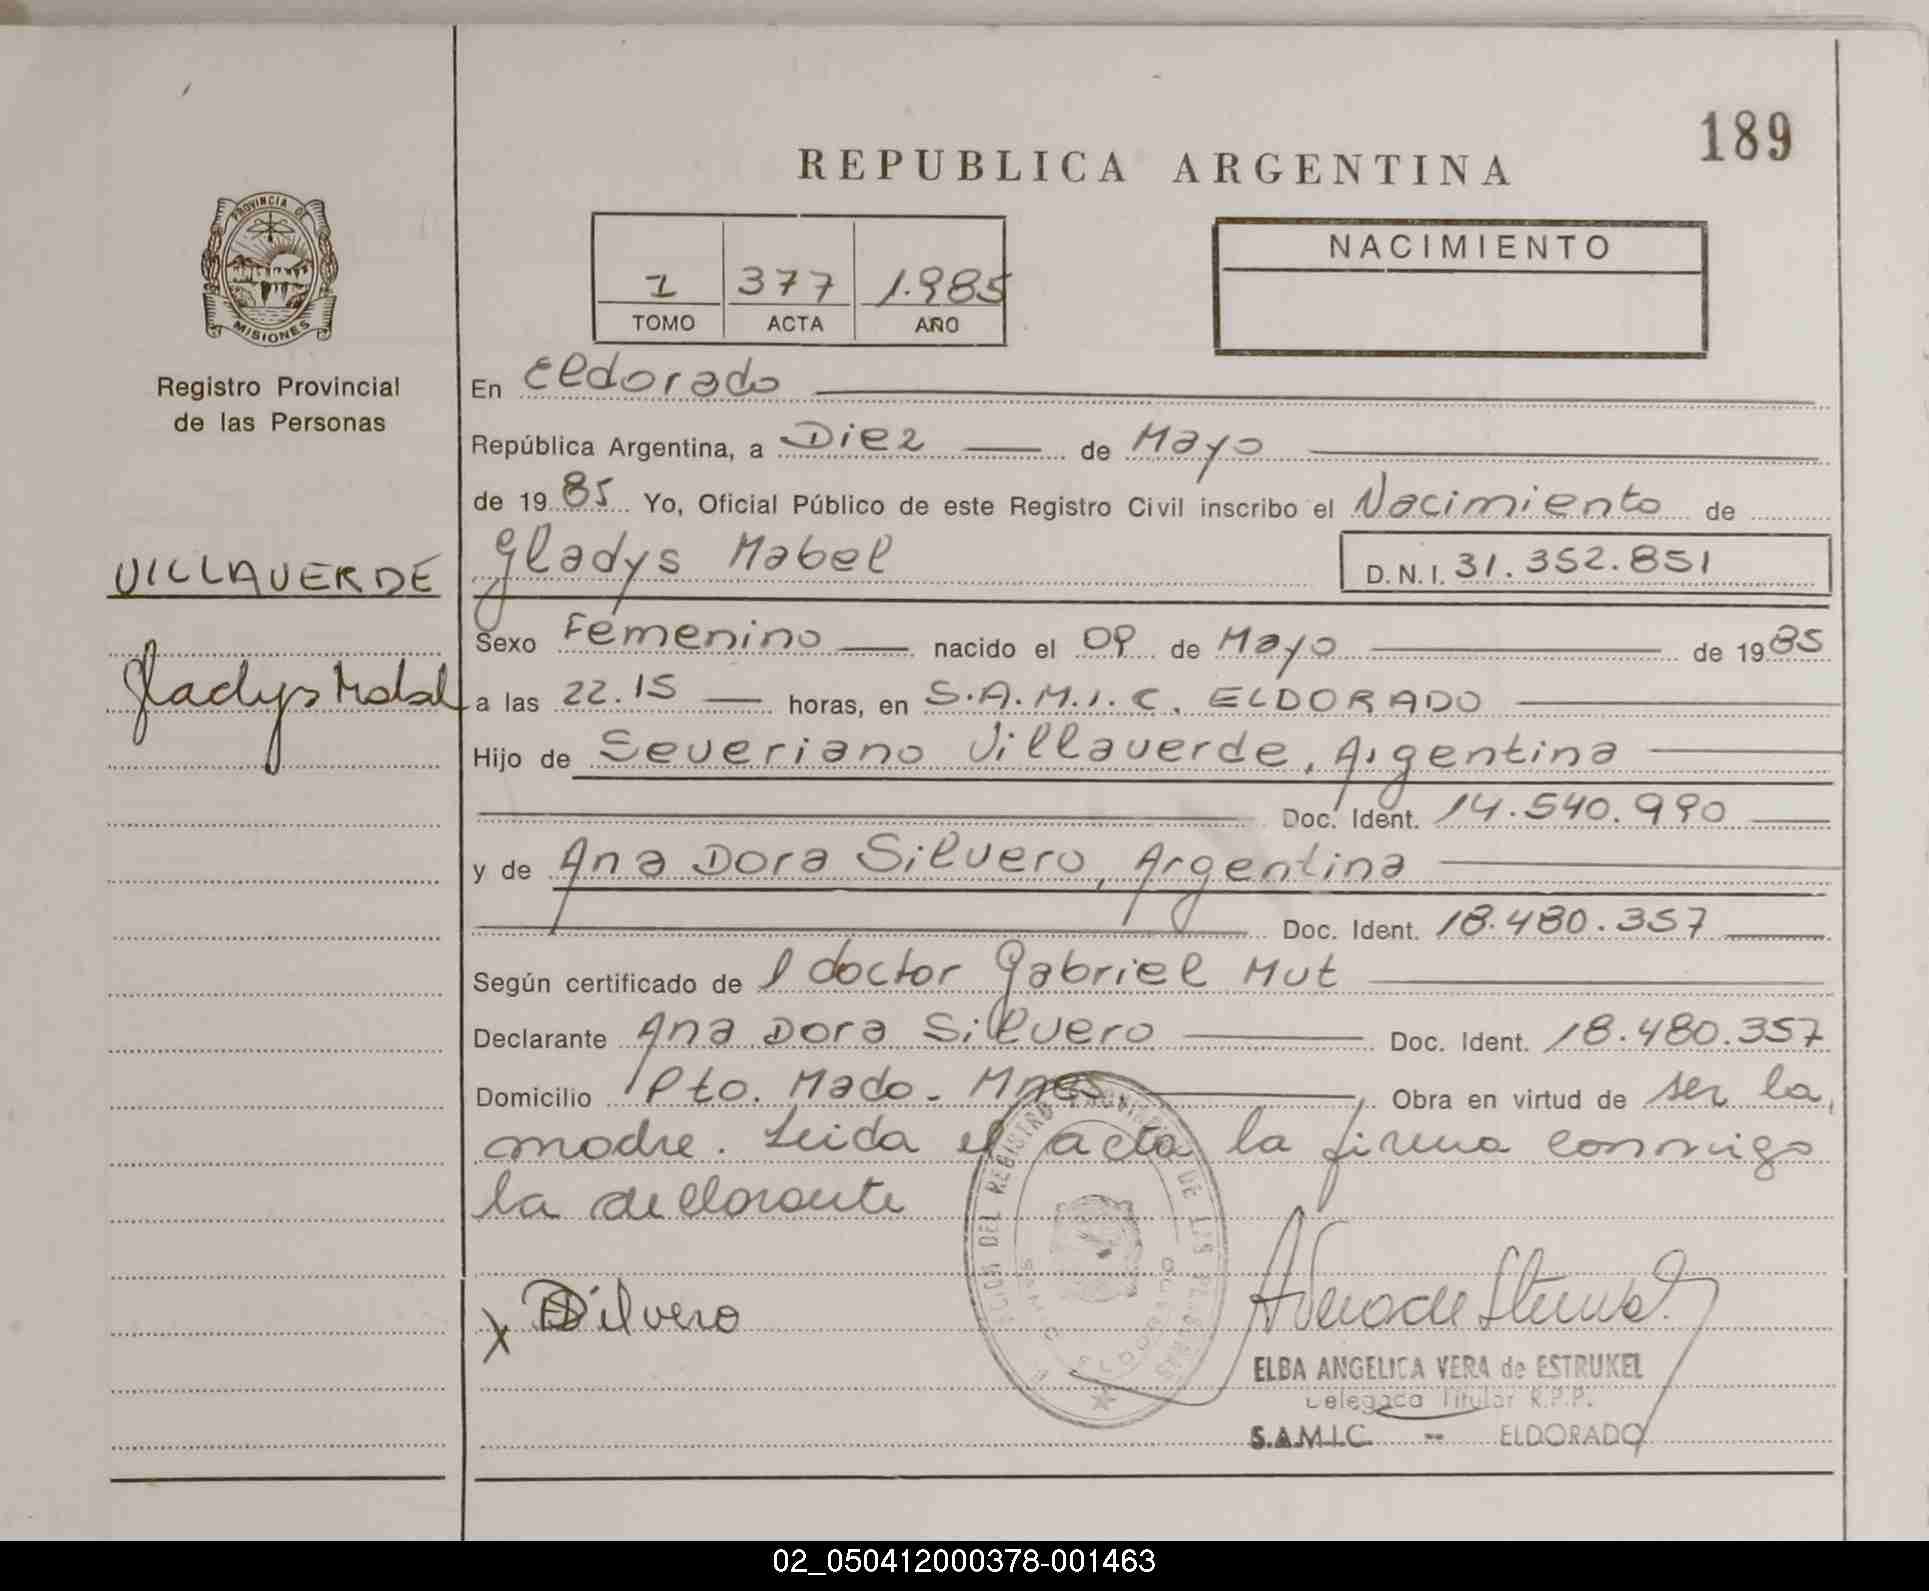 189
REPUBLICA ARGENTINA
PROVINCIA DE
MISIONES
Registro Provincial
de las Personas
1 377 1.985
TOMO ACTA AÑO
NACIMIENTO
En Eldorado
República Argentina, a Diez de Mayo
de 1985 Yo, Oficial Público de este Registro Civil inscribo el Nacimiento de
VILLAVERDE
Gladys Mabel
Gladys Mabel D.N.I. 31.352.851
Sexo Femenino nacido el 09 de Mayo de 1985
a las 22.15 horas, en S.A.M.I.C. ELDORADO
Hijo de Severiano Villaverde, Argentina
Doc. Ident. 14.540.990
y de Ana Dora Silvero, Argentina
Doc. Ident. 18.480.357
Según certificado de l doctor Gabriel Mut
Declarante Ana Dora Silvero Doc. Ident. 18.480.357
Domicilio Pto. Mado - Mnes Obra en virtud de ser la
madre. Leida el acta la firma conmigo
la declarante
X DSilvero
DEL REGISTRO PROVINCIAL DE LAS PERSONAS
ELDORADO
ELBA ANGELICA VERA de ESTRUKEL
Delegada Titular R.P.P.
S.A.M.I.C. -- ELDORADO
02_050412000378-001463